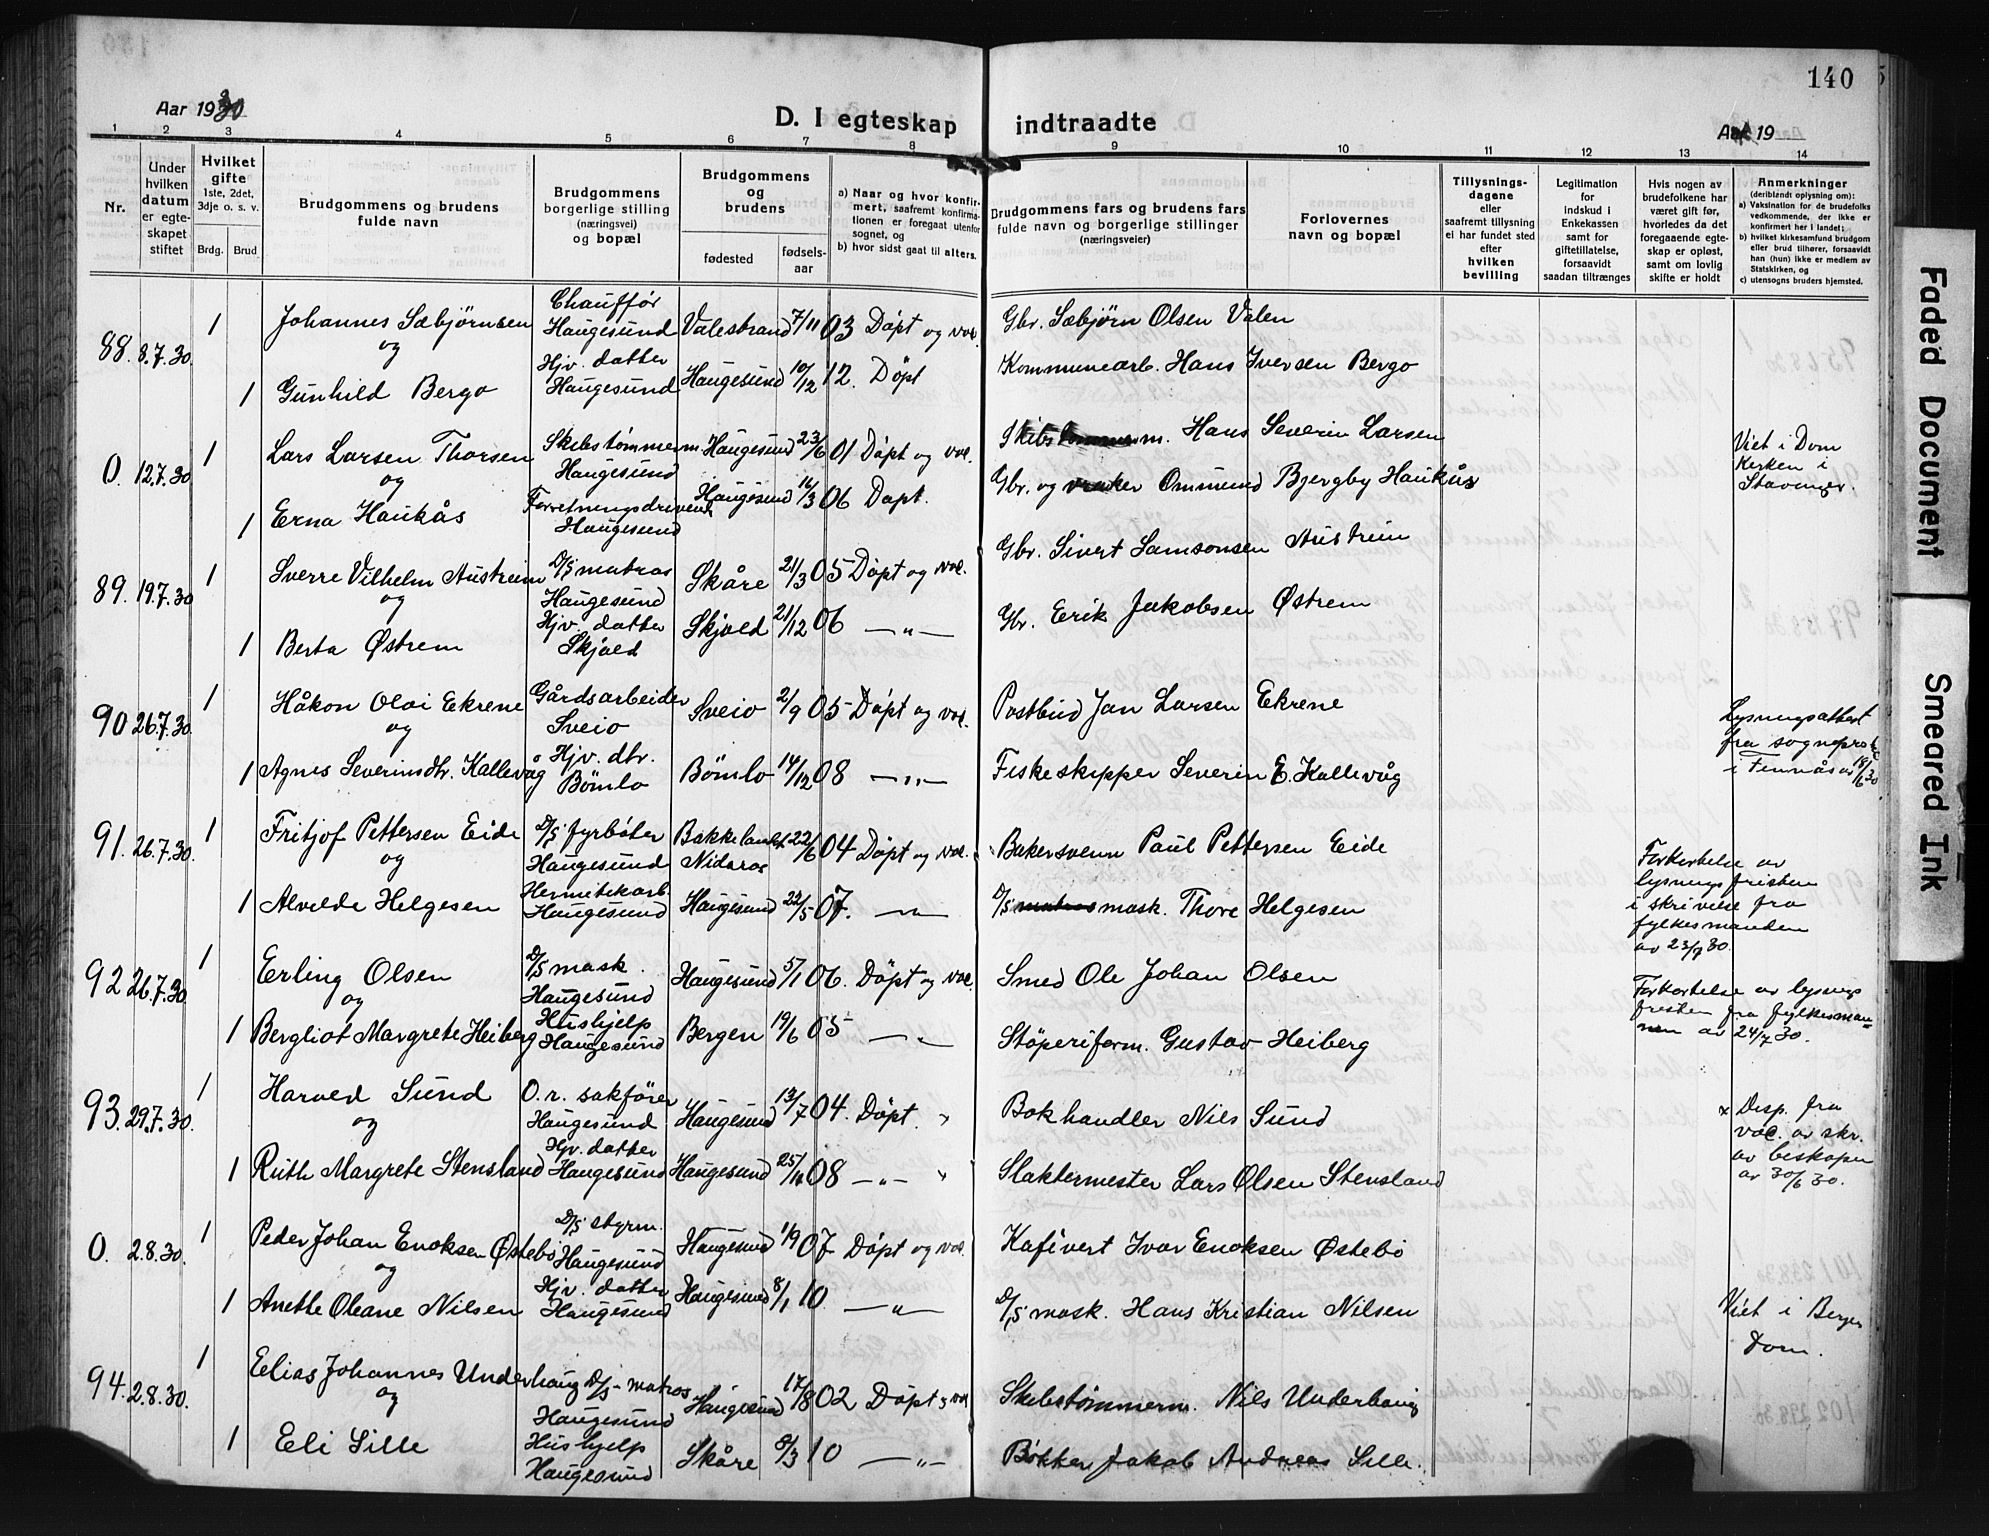 140
Aar 1930
D. I egteskap indtraadte
Aar 19
1 2 3 4 5 6 7 8 9 10 11 12 13 14
Nr.
Under hvilken datum er egteskapet stiftet
Hvilket gifte
1ste, 2det, 3dje o. s. v.
Brdg. Brud
Brudgommens og brudens fulde navn
Brudgommens borgerlige stilling (næringsvei) og bopæl
Brudgommens og brudens
fødested
fødselsaar
a) Naar og hvor konfirmert, saafremt konfirmationen er foregaat utenfor sognet, og
b) hvor sidst gaat til alters.
Brudgommens fars og brudens fars fulde navn og borgerlige stillinger (næringsveier)
Forlovernes navn og bopæl
Tillysningsdagene eller saafremt tillysning ei har fundet sted efter hvilken bevilling
Legitimation for indskud i Enkekassen samt for giftetillatelse, forsaavidt saadan tiltrænges
Hvis nogen av brudefolkene har været gift før, hvorledes da det foregaaende egteskap er opløst, samt om lovlig skifte er holdt
Anmerkninger (deriblandt oplysning om):
a) Vaksination for de brudefolks vedkommende, der ikke er konfirmert her i landet;
b) hvilket kirkesamfund brudgom eller brud tilhører, forsaavidt han (hun) ikke er medlem av Statskirken, og
c) utensogns bruders hjemsted.
88. 8.7.30. 1 Johannes Sæbjørnsen Chauffør Haugesund Valestrand 7/11 03 Döpt og vac. Gbr. Sæbjörn Olsen Valen
og
1 Gunhild Bergo Hjv. datter Haugesund Haugesund 10/12 12. Döpt Kommunearb. Hans Iversen Bergo
0. 12.7.30 1 Lars Larsen Thorsen Skibstömmerm. Haugesund Haugesund 23/6 01 Döpt og vac. Skibstömmerm. Hans Severin Larsen Viet i Dom Kirken i Stavanger.
og
1 Erna Haukås Forretningsdrivende Haugesund Haugesund 16/3 06 Döpt. Gbr. og vraker Ommund Bjergby Haukås
89. 19.7.30 1 Sverre Vilhelm Austreim D/S matros Haugesund Skåre 21/3 05 Döpt og vac. Gbr. Sivert Samsonsen Austreim
og
1 Berta Østrem Hjv. datter Skjold Skjold 21/12 06 — " — Gbr. Erik Jakobsen Østrem
90 26.7.30. 1 Håkon Olai Ekrene Gårdsarbeider Sveio Sveio 2/9 05 Döpt og vac. Postbud Jan Larsen Ekrene Lysningsattest fra sogneprest i Finnås av 18/6 30
og
1 Agnes Severinsdtr. Kallevåg Hjv. dtr. Bömlo Bömlo 14/12 08 — " — Fiskeskipper Severin E. Kallevåg
91. 26.7.30. 1 Fritjof Pettersen Eide D/S fyrböter Haugesund Bakkelandet Nidaros 22/6 04 Döpt og vac. Bakersvenn Paul Pettersen Eide Forkortelse av lysningsfristen i skrivelse fra fylkesmanden av 23/7 30.
og
1 Alvilde Helgesen Hermetikarb. Haugesund Haugesund 22/5 07. — " — D/S mask. Thore Helgesen
92 26.7.30. 1 Erling Olsen D/S mask. Haugesund Haugesund 5/1 06. Döpt og vac. Smed Ole Johan Olsen Forkortelse av lysningsfristen fra fylkesmannen av 24/7 30.
og
1 Bergliot Margrete Heiberg Hushjelp Haugesund Bergen 19/6 05 — " — Stöperiform. Gustav Heiberg
93. 29.7.30. 1 Harved Sund O.r. sakförer Haugesund Haugesund 13/7 04. Döpt. × Bokhandler Nils Sund × Disp. fra vac. av skr. av biskopen av 30/6 30.
og
1 Ruth Margrete Stensland Hjv. datter Haugesund Haugesund 25/11 08 — " — × Slaktermester Lars Olsen Stensland
0. 2.8.30. 1 Peder Johan Enoksen Östebö D/S styrm. Haugesund Haugesund 1/9 07 Döpt og vac. Kafévert Ivar Enoksen Østebö
og
1 Anette Oleane Nilsen Hjv. datter Haugesund Haugesund 8/1 10 — " — D/S mask. Hans Kristian Nilsen Viet i Bergen Dom.
94. 2.8.30. 1 Elias Johannes Underhaug D/S matros Haugesund Haugesund 17/8 02 Döpt og vac Skibstömmerm. Nils Underhaug
og
1 Eli Lille Hushjelp Haugesund Skåre 8/3 10 — " — Bökker Jakob Andreas Lille.
Faded Document
Smeared Ink